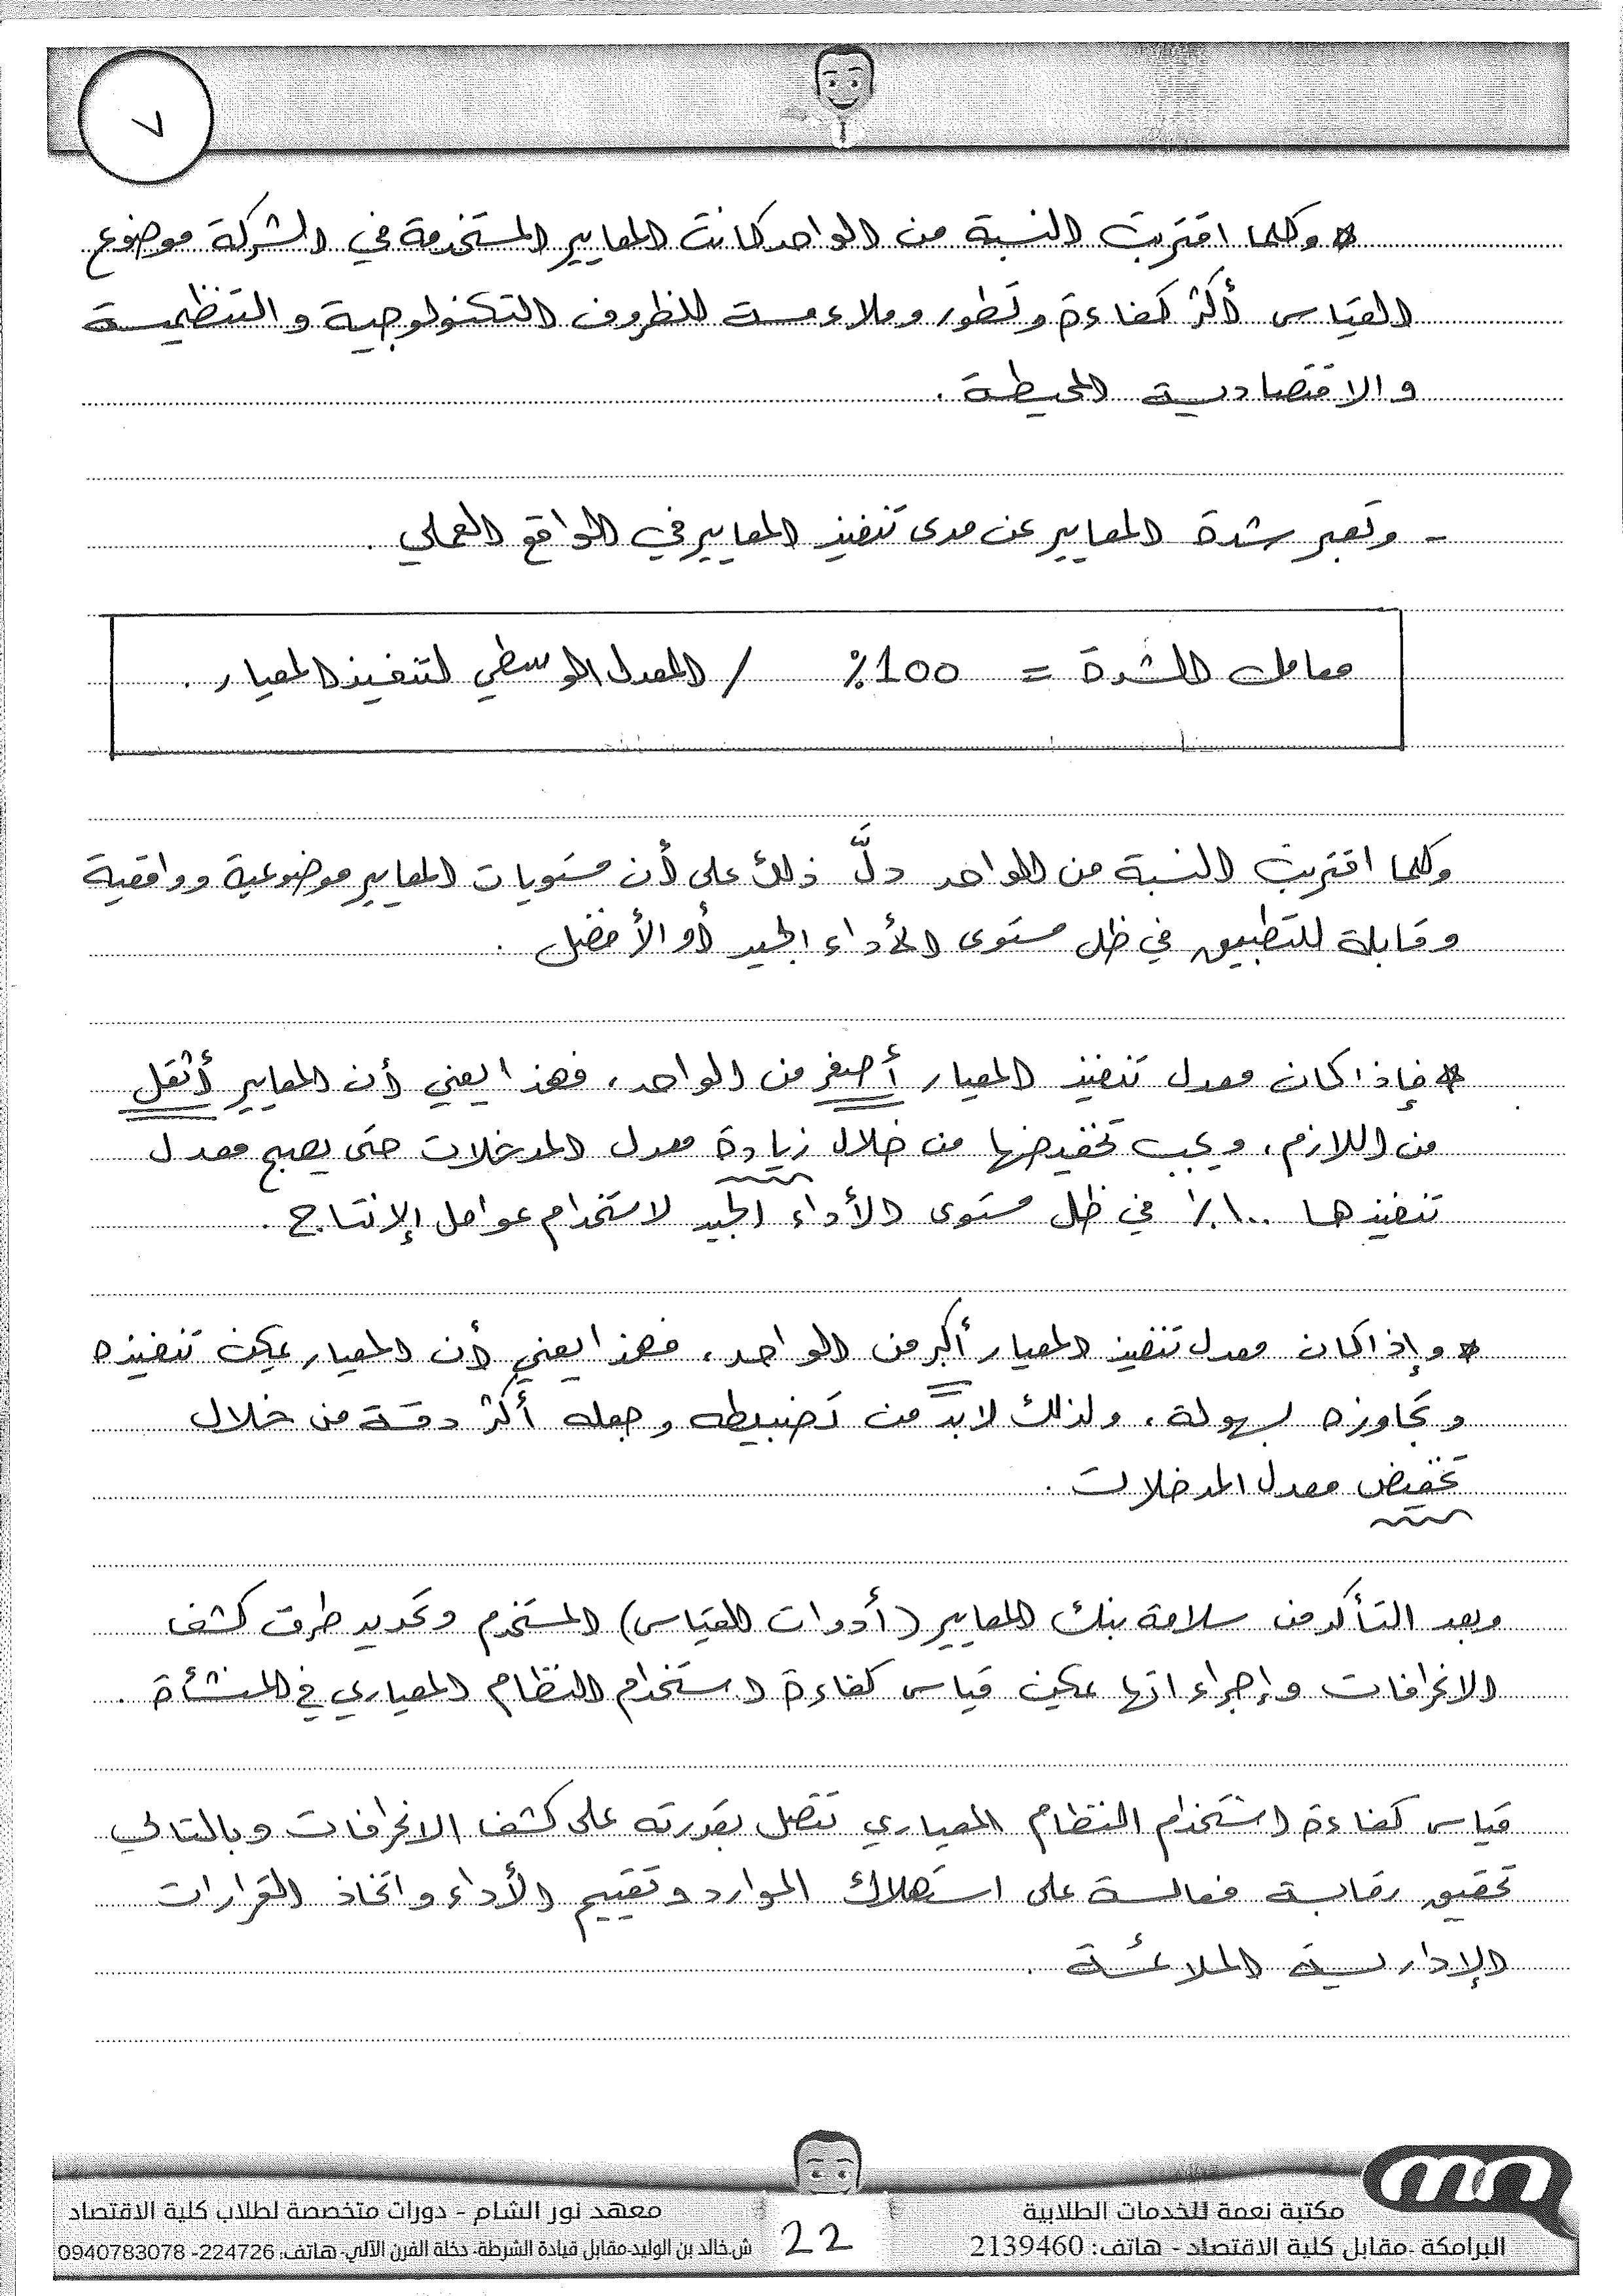 ٧
* وكلما اقتربت النسبة من الواحد كانت المعايير المستخدمة في الشركة موضوع
القياس أكثر كفاءة وتطور وملاءمة للظروف التكنولوجية والتنظيمية
والاقتصادية المحيطة .
- وتعبر شدة المعايير عن مدى تنفيذ المعايير في الواقع العملي .
معامل الشدة = 100% / المعدل الوسطي لتنفيذ المعيار .
وكلما اقتربت النسبة من الواحد دلَّ ذلك على أن مستويات المعايير موضوعية وواقعية
وقابلة للتطبيق في ظل مستوى الأداء الجيد أو الأفضل .
* فإذا كان معدل تنفيذ المعيار أصغر من الواحد، فهذا يعني أن المعايير أثقل
من اللازم، ويجب تخفيضها من خلال زيادة معدل المدخلات حتى يصبح معدل
تنفيذها ١٠٠% في ظل مستوى الأداء الجيد لاستخدام عوامل الإنتاج .
* وإذا كان معدل تنفيذ المعيار أكبر من الواحد، فهذا يعني أن المعيار يمكن تنفيذه
وتجاوزه بسهولة، ولذلك لابدَّ من تضبيطه وجعله أكثر دقة من خلال
تخفيض معدل المدخلات .
وبعد التأكد من سلامة بنك المعايير (أدوات القياس) المستخدم وتحديد طرق كشف
الانحرافات وإجراءاتها يمكن قياس كفاءة استخدام النظام المعياري في المنشأة .
قياس كفاءة استخدام النظام المعياري تتصل بقدرته على كشف الانحرافات وبالتالي
تحقيق رقابة فعالة على استهلاك الموارد وتقييم الأداء واتخاذ القرارات
الإدارية الملائمة .
مكتبة نعمة للخدمات الطلابية
البرامكة -مقابل كلية الاقتصاد - هاتف: 2139460
22
معهد نور الشام - دورات متخصصة لطلاب كلية الاقتصاد
ش.خالد بن الوليد-مقابل قيادة الشرطة- دخلة الفرن الآلي- هاتف: 224726- 0940783078